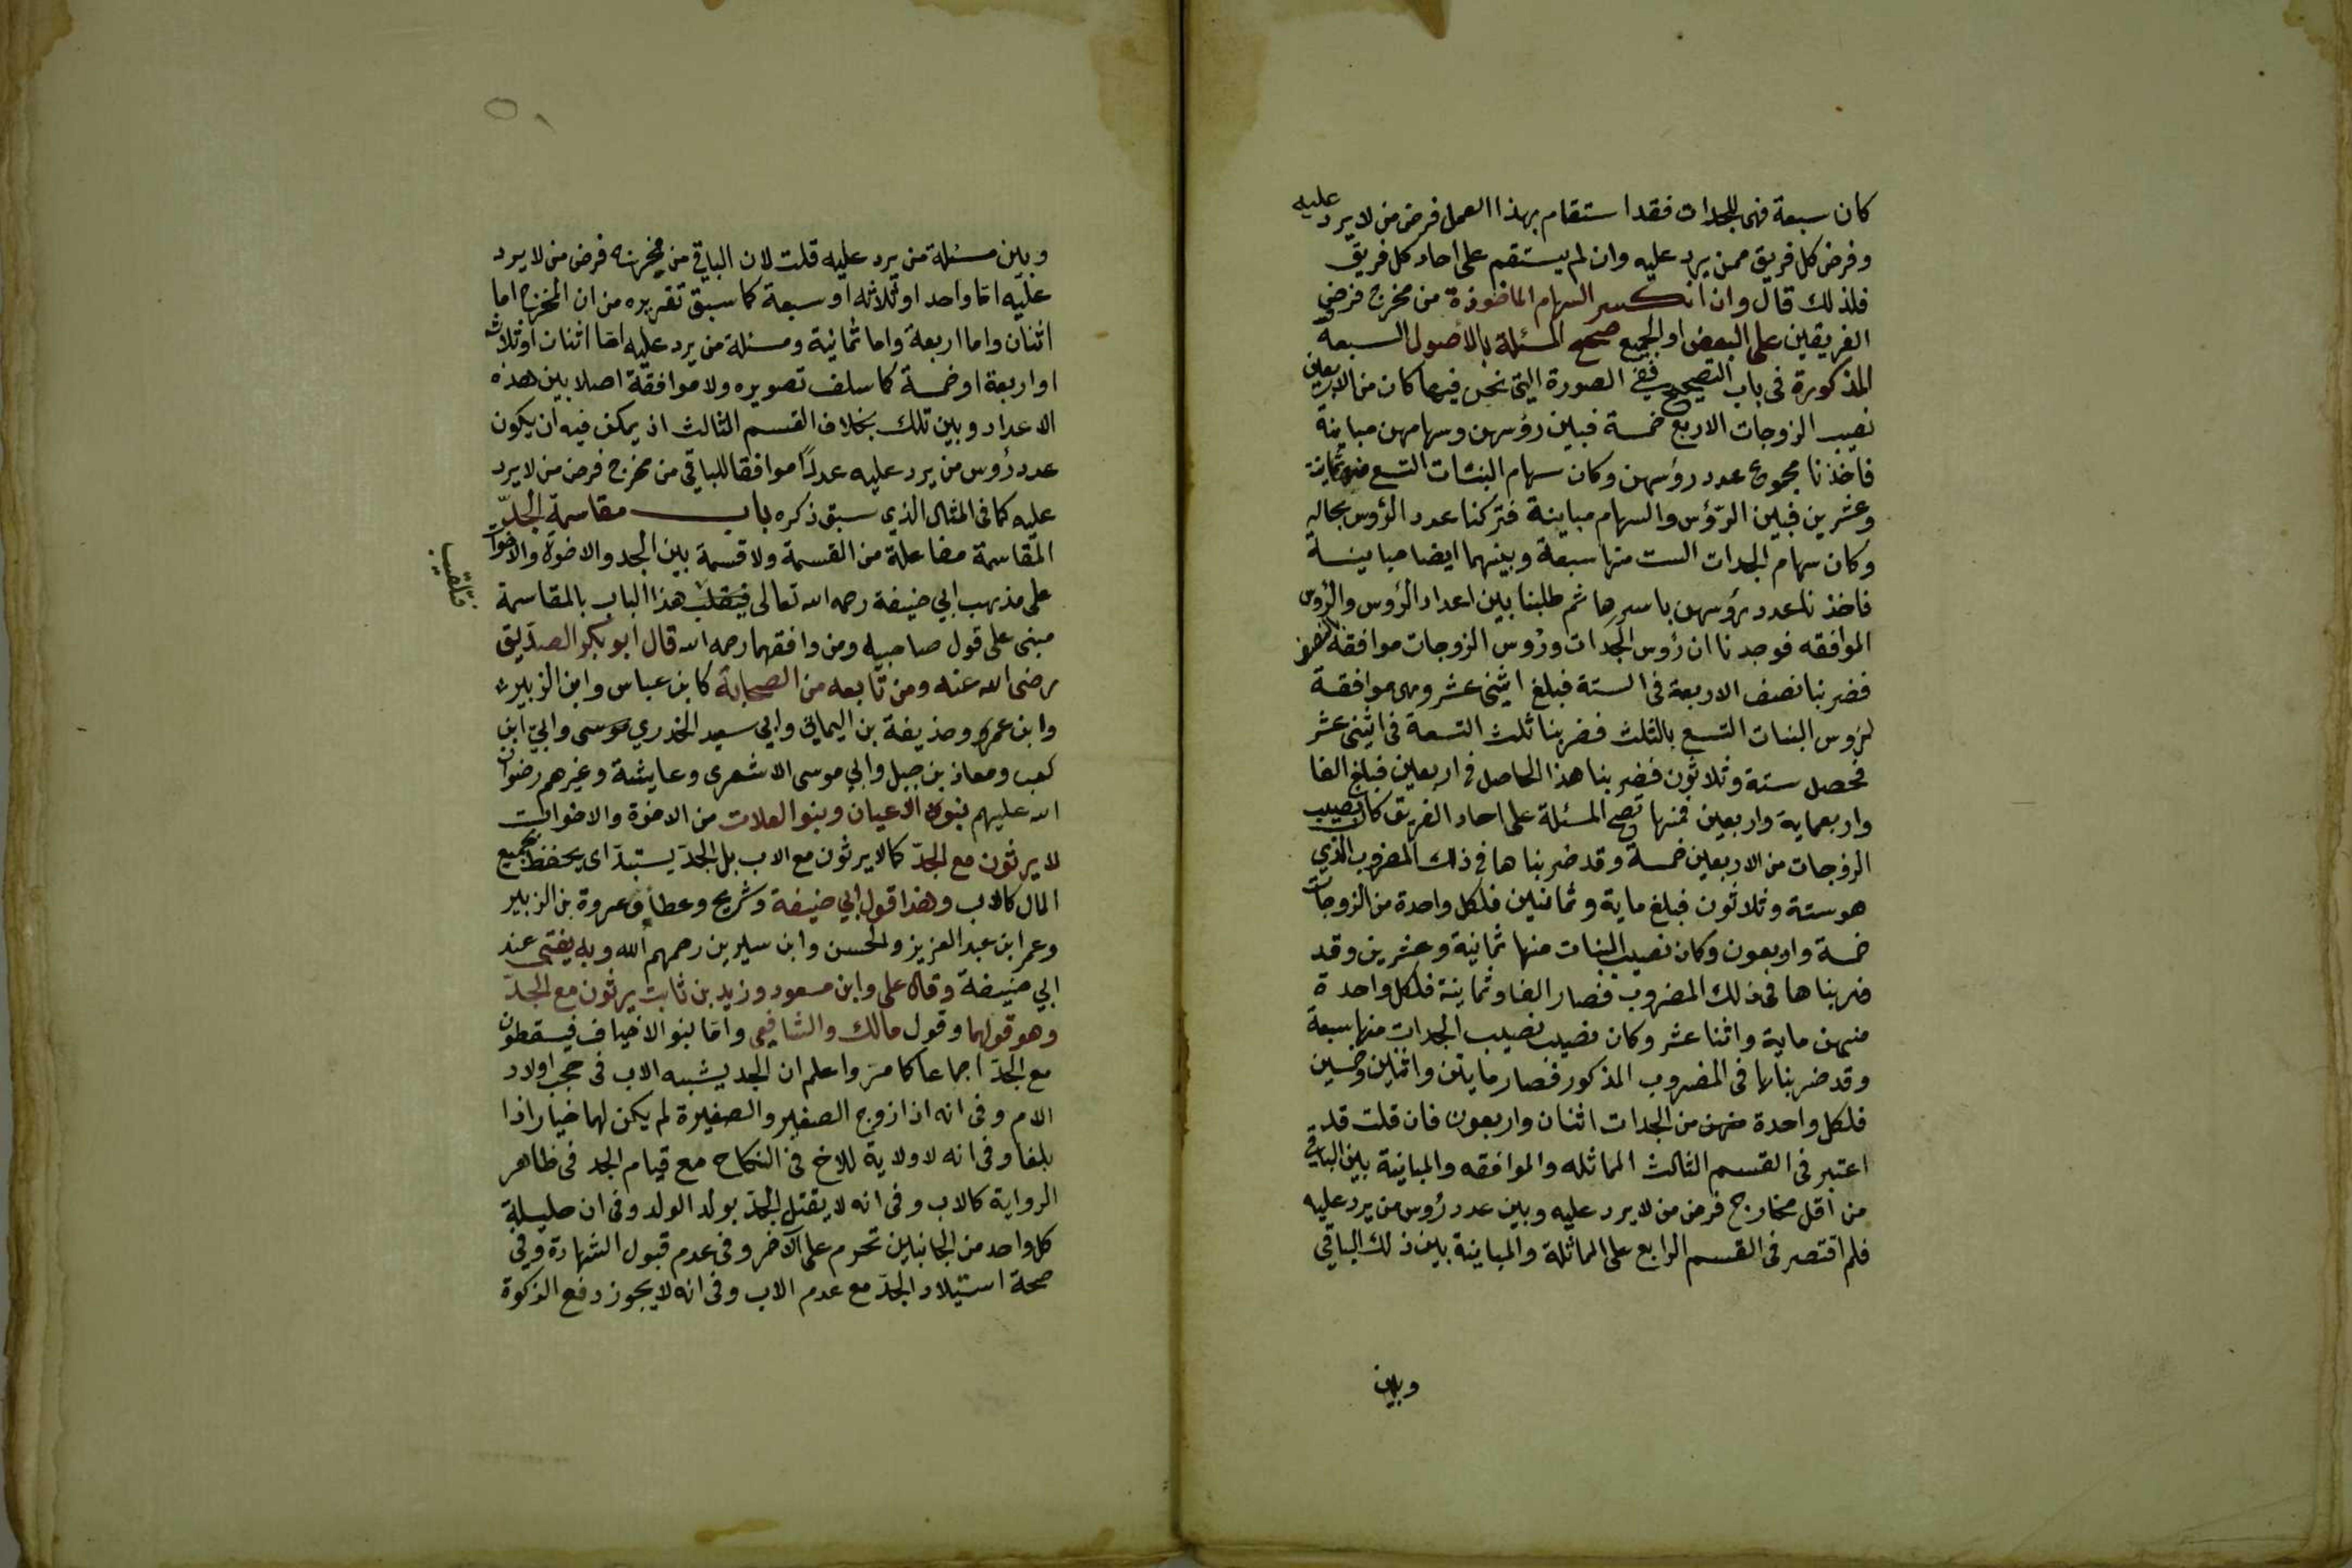 كان سبعة فهى للجدات فقد استقام بهذا العمل فرض من لا يرد عليه
وفرض كل فريق ممن يرد عليه وان لم يستقم على احاد كل فريق
فلذلك قال وان انكسر السهام الماخوذة من مخرج فرض
الفريقين على البعض او الجميع صحح المسئلة بالاصول السبعة
المذكورة فى باب التصحيح ففى الصورة التى نحن فيها كان من الاربعين
نصيب الزوجات الاربع خمسة فبين رؤسهن وسهامهن مباينة
فاخذنا مجموع عدد رؤسهن وكان سهام البنات التسع منها ثمانية
وعشرين فبين الرؤس والسهام مباينة فتركنا عدد الرؤس بحاله
وكان سهام الجدات الست منها سبعة وبينهما ايضا مباينة
فاخذنا عدد رؤسهن باسرها ثم طلبنا بين اعداد الرؤس والرؤس
الموافقه فوجدنا ان رؤس الجدات ورؤس الزوجات موافقة بالنصف
فضربنا نصف الاربعة فى الستة فبلغ اثنى عشر وهى موافقة
لرؤس البنات التسع بالثلث فضربنا ثلث التسعة فى اثنى عشر
فحصل ستة وثلاثون فضربنا هذا الحاصل فى اربعين فبلغ الفا
واربعماية واربعين فمنها تصح المسئلة على احاد الفريق كان نصيب
الزوجات من الاربعين خمسة وقد ضربناها في ذلك المضروب الذي
هو ستة وثلاثون فبلغ ماية وثمانين فلكل واحدة من الزوجات
خمسة واربعون وكان نصيب البنات منها ثمانية وعشرين وقد
ضربناها فى ذلك المضروب فصار الفا وثمانية فلكل واحدة
منهن ماية واثنا عشر وكان نصيب نصيب الجدات منها سبعة
وقد ضربناها فى المضروب المذكور فصار مايتين واثنين وخمسين
فلكل واحدة منهن من الجدات اثنان واربعون فان قلت قد
اعتبر فى القسم الثالث المماثله والموافقه والمباينة بين الباقي
من اقل مخارج فرض من لا يرد عليه وبين عدد رؤس من يرد عليه
فلم اقتصر فى القسم الرابع على المماثلة والمباينة بين ذلك الباقي
وبين
وبين مسئلة من يرد عليه قلت لان الباقي من مخرج فرض من لا يرد
عليه اما واحد او ثلاثه او سبعة كما سبق تقريره من ان المخرج اما
اثنان واما اربعة واما ثمانية ومسئلة من يرد عليه اما اثنان او ثلاثه
او اربعة او خمسة كما سلف تصويره ولا موافقة اصلا بين هذه
الاعداد وبين تلك بخلاف القسم الثالث اذ يمكن فيه ان يكون
عدد رؤس من يرد عليه عددًا موافقا للباقي من مخرج فرض من لا يرد
عليه كما فى المثال الذي سبق ذكره باب مقاسمة الجدّ
المقاسمة مفاعلة من القسمة ولا قسمة بين الجد والاخوة والاخوات
على مذهب ابي حنيفة رحمه الله تعالى فيقلب هذا الباب بالمقاسمة
فتلقيب
مبنى على قول صاحبيه ومن وافقهما رحمه الله قال ابو بكر الصديق
رضى الله عنه ومن تابعه من الصحابة كابن عباس وابن الزبير
وابن عمر وحذيفة بن اليماني وابي سعيد الخدري موسى وابيّ ابن
كعب ومعاذ بن جبل وابي موسى الاشعرى وعايشة وغيرهم رضوان
الله عليهم بنوا الاعيان وبنو العلات من الاخوة والاخوات
لا يرثون مع الجدّ كما لا يرثون مع الاب بل الجدّ يستبدّ اى يحفظ بجميع
المال كالاب وهذا قول ابي حنيفة وشريح وعطاء وعروة بن الزبير
وعمر ابن عبد العزيز والحسن وابن سيرين رحمهم الله وبه يفتى عند
ابي حنيفة وقال على وابن مسعود وزيد بن ثابت يرثون مع الجدّ
وهو قولهما وقول مالك والشافعى واما بنو الاخياف فيسقطون
مع الجدّ اجماعا كما مرّ واعلم ان الجد يشبه الاب فى حجب اولاد
الام وفى انه اذا زوج الصغير والصغيرة لم يكن لهما خيار اذا
بلغا وفى انه لا ولاية للاخ فى النكاح مع قيام الجد فى ظاهر
الرواية كالاب وفى انه لا يقتل الجدّ بولد الولد وفى ان حليلة
كل واحد من الجانبين تحرم على الآخر وفى عدم قبول الشهادة وفي
صحة استيلاد الجدّ مع عدم الاب وفى انه لا يجوز دفع الزكوة